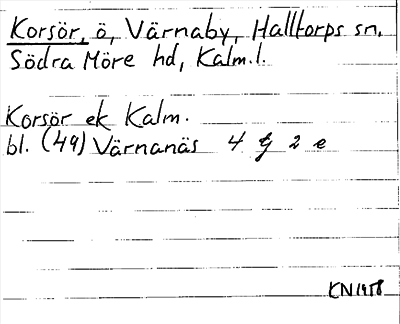 Korsör, ö, Värnaby, Halltorps sn.
Södra Möre hd, Kalm.l.
Korsör ek Kalm.
bl. (49) Värnanäs 4 g 2 e
KN1958